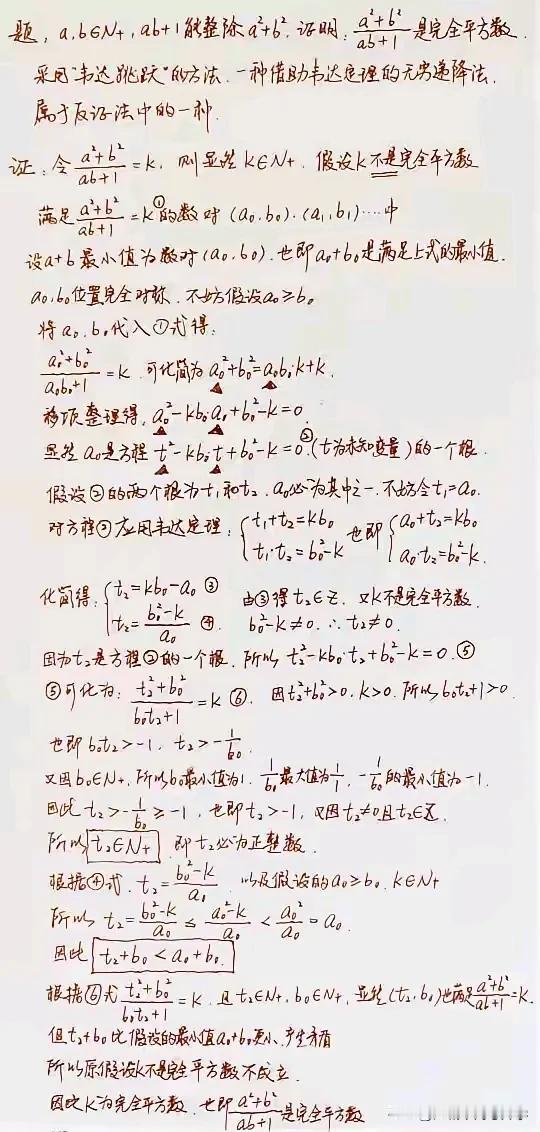 题, a,b∈N+, ab+1能整除a²+b². 证明: (a²+b²)/(ab+1) 是完全平方数.
采用"韦达跳跃"的方法. 一种借助韦达定理的无穷递降法.
属于反证法中的一种.
证: 令(a²+b²)/(ab+1)=k, 则显然k∈N+. 假设k不是完全平方数
满足(a²+b²)/(ab+1)=k①的数对(a₀,b₀)·(a₁,b₁)……中
设a+b最小值为数对(a₀,b₀). 也即a₀+b₀是满足上式的最小值.
a₀,b₀位置完全对称. 不妨假设a₀≥b₀
将a₀,b₀代入①式得:
(a₀²+b₀²)/(a₀b₀+1)=k. 可化简为a₀²+b₀²=a₀b₀·k+k.
移项整理得, a₀²-kb₀·a₀+b₀²-k=0.
显然a₀是方程t²-kb₀·t+b₀²-k=0②(t为未知变量)的一个根.
假设②的两个根为t₁和t₂. a₀必为其中之一. 不妨令t₁=a₀.
对方程②应用韦达定理: {t₁+t₂=kb₀ t₁·t₂=b₀²-k 也即 {a₀+t₂=kb₀ a₀·t₂=b₀²-k.
化简得: {t₂=kb₀-a₀ ③ t₂=(b₀²-k)/a₀ ④. 由③得t₂∈Z. 又k不是完全平方数. b₀²-k≠0. ∴t₂≠0.
因为t₂是方程②的一个根. 所以t₂²-kb₀·t₂+b₀²-k=0.⑤
⑤可化为: (t₂²+b₀²)/(b₀t₂+1)=k ⑥. 因t₂²+b₀²>0. k>0. 所以b₀t₂+1>0.
也即b₀t₂>-1, t₂>-1/b₀.
又因b₀∈N+, 所以b₀最小值为1. 1/b₀最大值为1/1, -1/b₀的最小值为-1.
因此t₂>-1/b₀≥-1, 也即t₂>-1, 又因t₂≠0且t₂∈Z.
所以t₂∈N+ 即t₂必为正整数.
根据④式, t₂=(b₀²-k)/a₀. 以及假设的a₀≥b₀. k∈N+
所以t₂=(b₀²-k)/a₀≤(a₀²-k)/a₀<a₀²/a₀=a₀.
因此 t₂+b₀<a₀+b₀.
根据⑥式(t₂²+b₀²)/(b₀t₂+1)=k. 且t₂∈N+, b₀∈N+, 显然(t₂,b₀)也满足(a²+b²)/(ab+1)=k.
但t₂+b₀比假设的最小值a₀+b₀更小. 产生矛盾
所以原假设k不是完全平方数不成立.
因此k为完全平方数. 也即(a²+b²)/(ab+1)是完全平方数